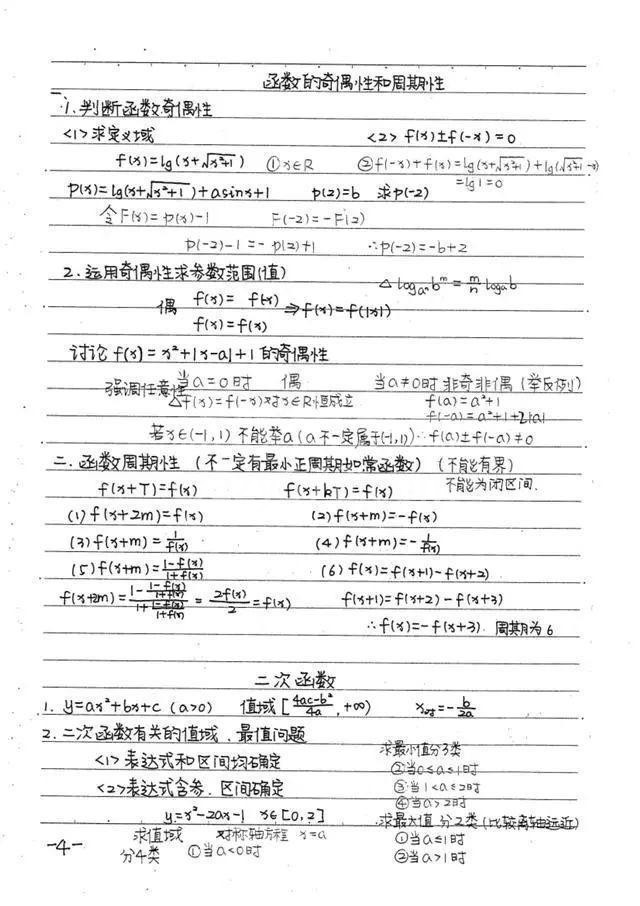 函数的奇偶性和周期性
1.判断函数奇偶性
<1>求定义域 <2> f(x)±f(-x)=0
f(x)=lg(x+√(x²+1)) ①x∈R ②f(-x)+f(x)=lg(x+√(x²+1))+lg(√(x²+1)-x)
=lg1=0
p(x)=lg(x+√(x²+1))+asinx+1 p(2)=b 求p(-2)
令F(x)=p(x)-1 F(-2)=-F(2)
p(-2)-1=-p(2)+1 ∴p(-2)=-b+2
2.运用奇偶性求参数范围(值)
△ log_{aⁿ}b^m=m/n log_a b
偶 f(x)=f(-x) ⇒f(x)=f(|x|)
f(x)=f(x)
讨论f(x)=x²+|x-a|+1的奇偶性
当a=0时 偶 当a≠0时 非奇非偶(举反例)
强调任意性 △f(x)=f(-x)对x∈R恒成立 f(a)=a²+1
f(-a)=a²+1+2|a|
若x∈(-1,1) 不能举a(a不一定属于(-1,1))∴f(a)±f(-a)≠0
二.函数周期性(不一定有最小正周期如常函数)(不能有界)
f(x+T)=f(x) f(x+kT)=f(x) 不能为闭区间.
(1)f(x+2m)=f(x) (2)f(x+m)=-f(x)
(3)f(x+m)=1/f(x) (4)f(x+m)=-1/f(x)
(5)f(x+m)=(1-f(x))/(1+f(x)) (6)f(x)=f(x+1)-f(x+2)
f(x+2m)=(1-(1-f(x))/(1+f(x)))/(1+(1-f(x))/(1+f(x)))=2f(x)/2=f(x) f(x+1)=f(x+2)-f(x+3)
∴f(x)=-f(x+3) 周期为6
二次函数
1. y=ax²+bx+c (a>0) 值域[(4ac-b²)/4a,+∞) x对=-b/2a
2.二次函数有关的值域、最值问题
<1>表达式和区间均确定
<2>表达式含参.区间确定
y=x²-2ax-1 x∈[0,2]
求值域 对称轴方程 x=a
分4类 ①当a<0时
求最小值分3类
②当0≤a≤1时
③当1<a≤2时
④当a>2时
求最大值 分2类(比较离轴远近)
①当a≤1时
②当a>1时
-4-